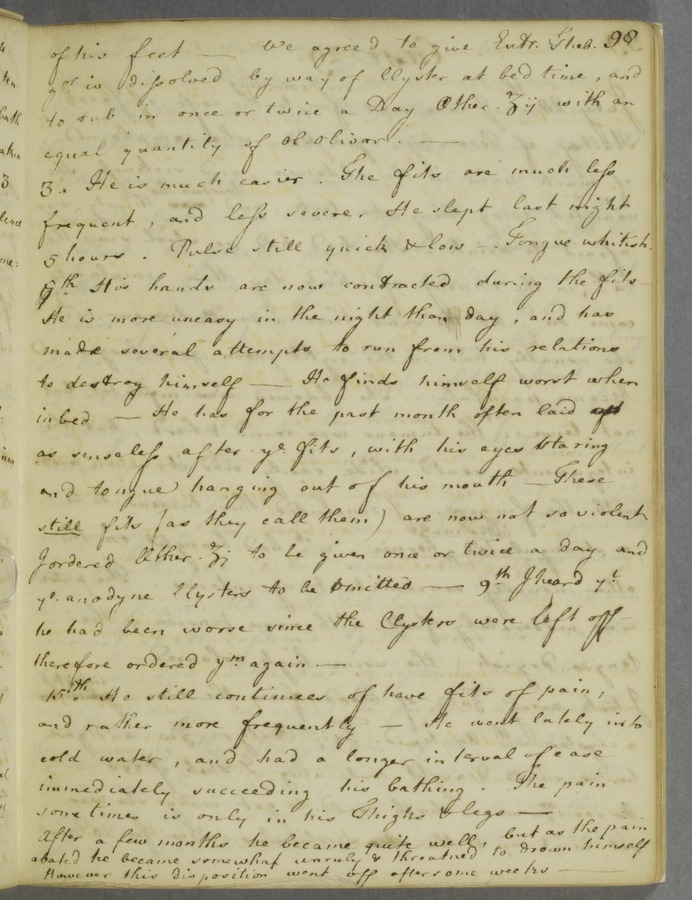 98
of his feet — We agreed to give Extr. Theb.
gr iv dissolved by way of Clyster at bed time, and
to rub in once or twice a Day Æther. ℥ij with an
equal quantity of ol olivar. —
3. He is much easier. The fits are much less
frequent, and less severe. He slept last night
5 hours. Pulse still quick & low —. Tongue whitish.
5th His hands are now contracted during the fits —
He is more uneasy in the night than day, and has
made several attempts to run from his relations
to destroy himself — He finds himself worst when
in bed — He has for the past month often laid
as senseless after ye. fits, with his eyes staring
and tongue hanging out of his mouth — These
still fits (as they call them) are now not so violent
I ordered Æther. ʒj to be given once or twice a day, and
ye. anodyne Clysters to be omitted — 9th I heard yt
he had been worse since the Clysters were left off
therefore ordered ym again —
15th. He still continues of have fits of pain,
and rather more frequently — He went lately into
cold water, and had a longer interval of ease
immediately succeeding his bathing. The pain
sometimes is only in his Thighs & legs —
After a few months he became quite well, but as the pain
abated he became somewhat unruly & threatned to drown himself
However this disposition went off after some weeks —